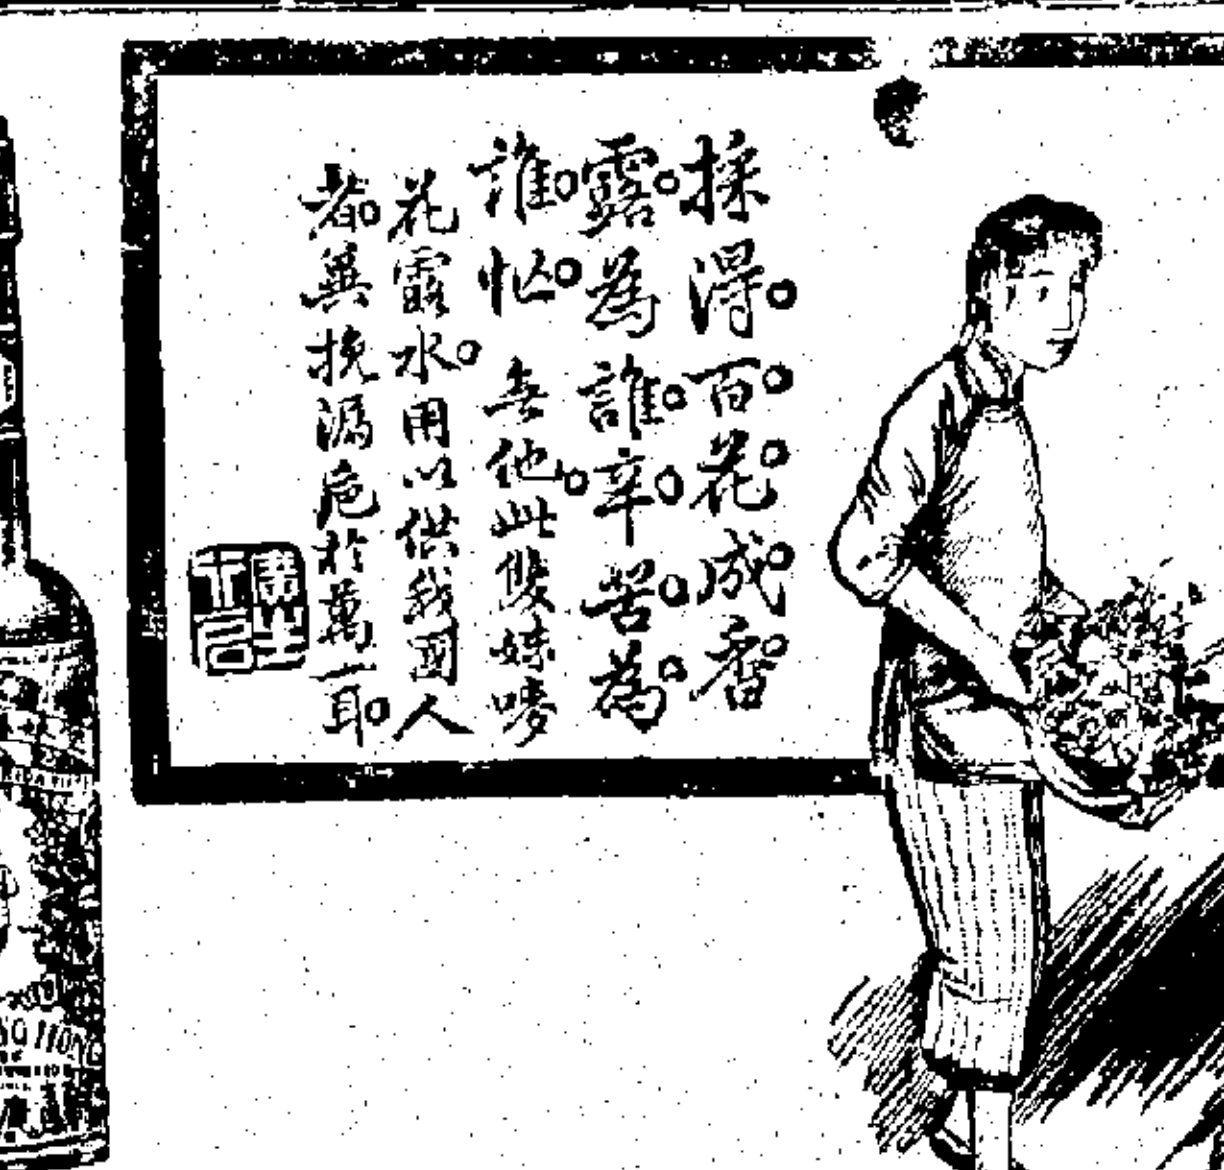 採得。百。花。成。香。
露。為誰。辛。苦。為。
誰。忙。無他。此雙妹嘜
花露水。用以供我國人
者。冀挽漏卮於萬一耳。